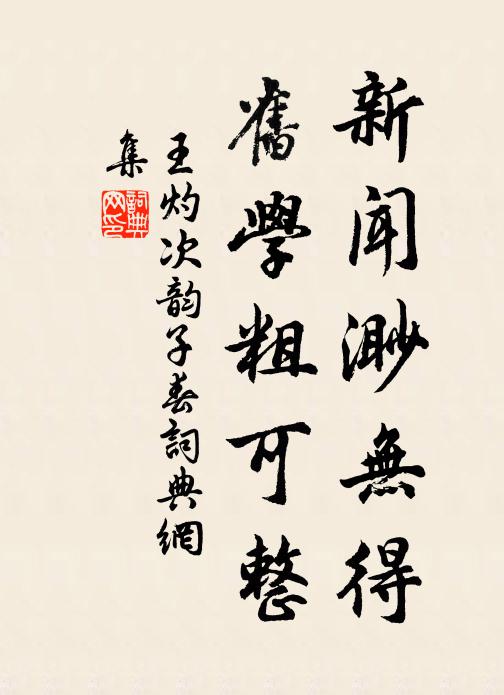 新聞渺無得
舊學粗可整
王灼次韵子春詞典網
集
詞典網印